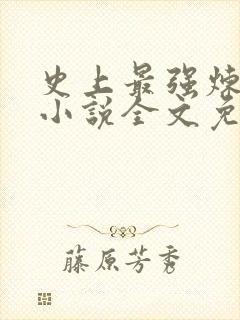 史上最强炼
小说全文免
藤原芳秀